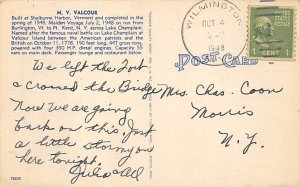 M. V. VALCOUR
Built at Shelburne Harbor, Vermont and completed in the
spring of 1948. Maiden Voyage July 2, 1948 on run from
Burlington, Vt. to Pt. Kent, N. Y. across Lake Champlain.
Named after the famous naval battle on Lake Champlain at
Valcour Island between the American patriots and the
British on October 11, 1776. 190 feet long, 497 gross tons,
powered with four 350 H.P. diesel engines. Capacity 56
cars on main deck. Passenger lounge and restaurant below.
WILMINGTON
OCT 4
1948
1 CENT
POST CARD
We left the Fort
& crossed the Bridge
Now we are going
back on this. Just
a little stormy one
here tonight.
Julia
Mrs. Chas. Coon
Morris
N. Y.